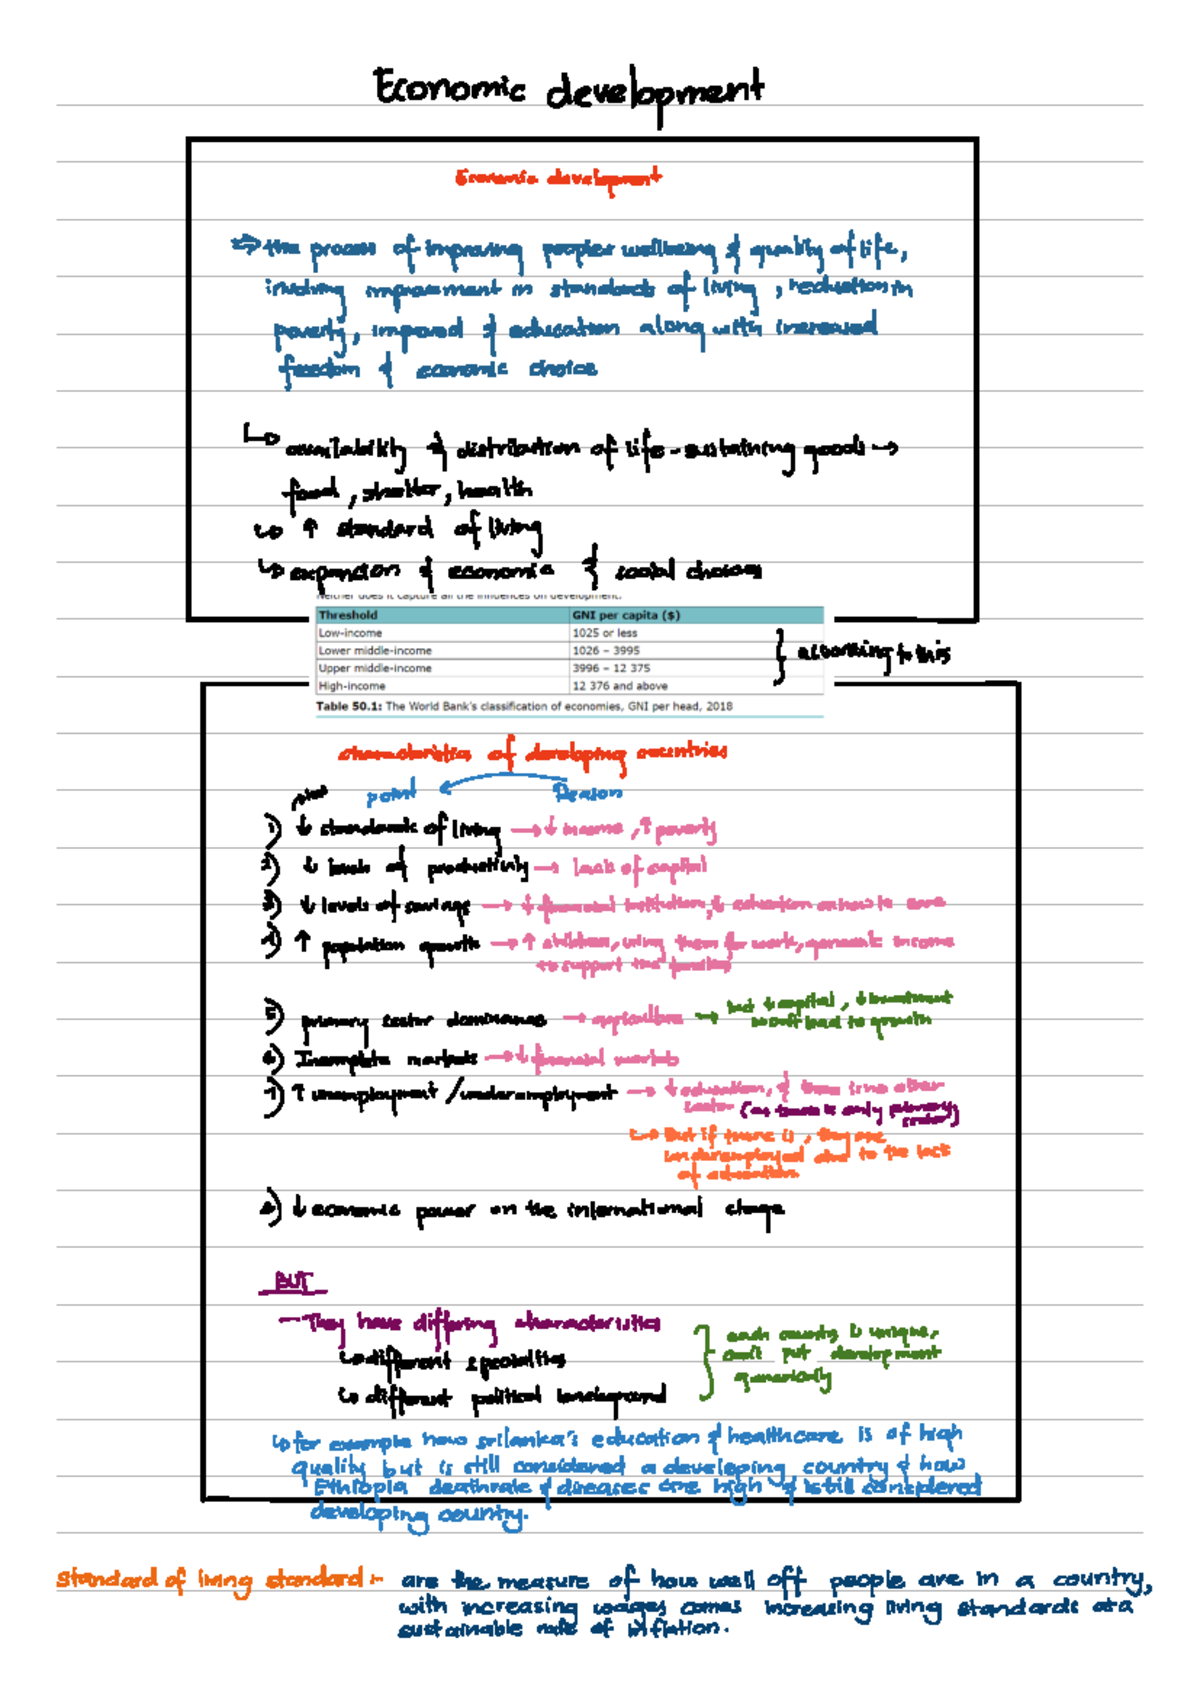 Economic development
Economic development
⇒ the process of improving peoples wellbeing & quality of life,
involving improvement in standards of living, reduction in
poverty, improved & education along with increased
freedom & economic choice
↳ availability & distribution of life-sustaining goods →
food, shelter, health
↳ ↑ standard of living
↳ expansion of economic & social choices
Neither does it capture all the influences on development.
Threshold GNI per capita ($)
Low-income 1025 or less
Lower middle-income 1026 – 3995
Upper middle-income 3996 – 12 375
High-income 12 376 and above
} according to this
Table 50.1: The World Bank's classification of economies, GNI per head, 2018
characteristics of developing countries
point Reason
1) ↓ standards of living → ↓ income, ↑ poverty
2) ↓ levels of productivity → lack of capital
3) ↓ levels of savings → ↓ financial institution, ↓ education on how to save
4) ↑ population growth → ↑ children, using them for work, generate income
to support the families
5) primary sector dominance → agriculture → but ↓ capital, ↓ investment
lead to growth
6) Incomplete markets → ↓ financial markets
7) ↑ unemployment / underemployment → ↓ education, & there is no other
sector (as there is only primary
sector)
↳ But if there is, they are
underemployed due to the lack
of education.
8) ↓ economic power on the international
BUT
— They have differing characteristics
↳ different specialties
↳ different political background
} each country is unique,
can't put development
generically
↳ for example how srilanka's education & healthcare is of high
quality but is still considered a developing country & how
Ethiopia deathrate & diseases are high & is still considered
developing country.
standard of living standard:- are the measure of how well off people are in a country,
with increasing wages comes increasing living standards at a
sustainable rate of inflation.